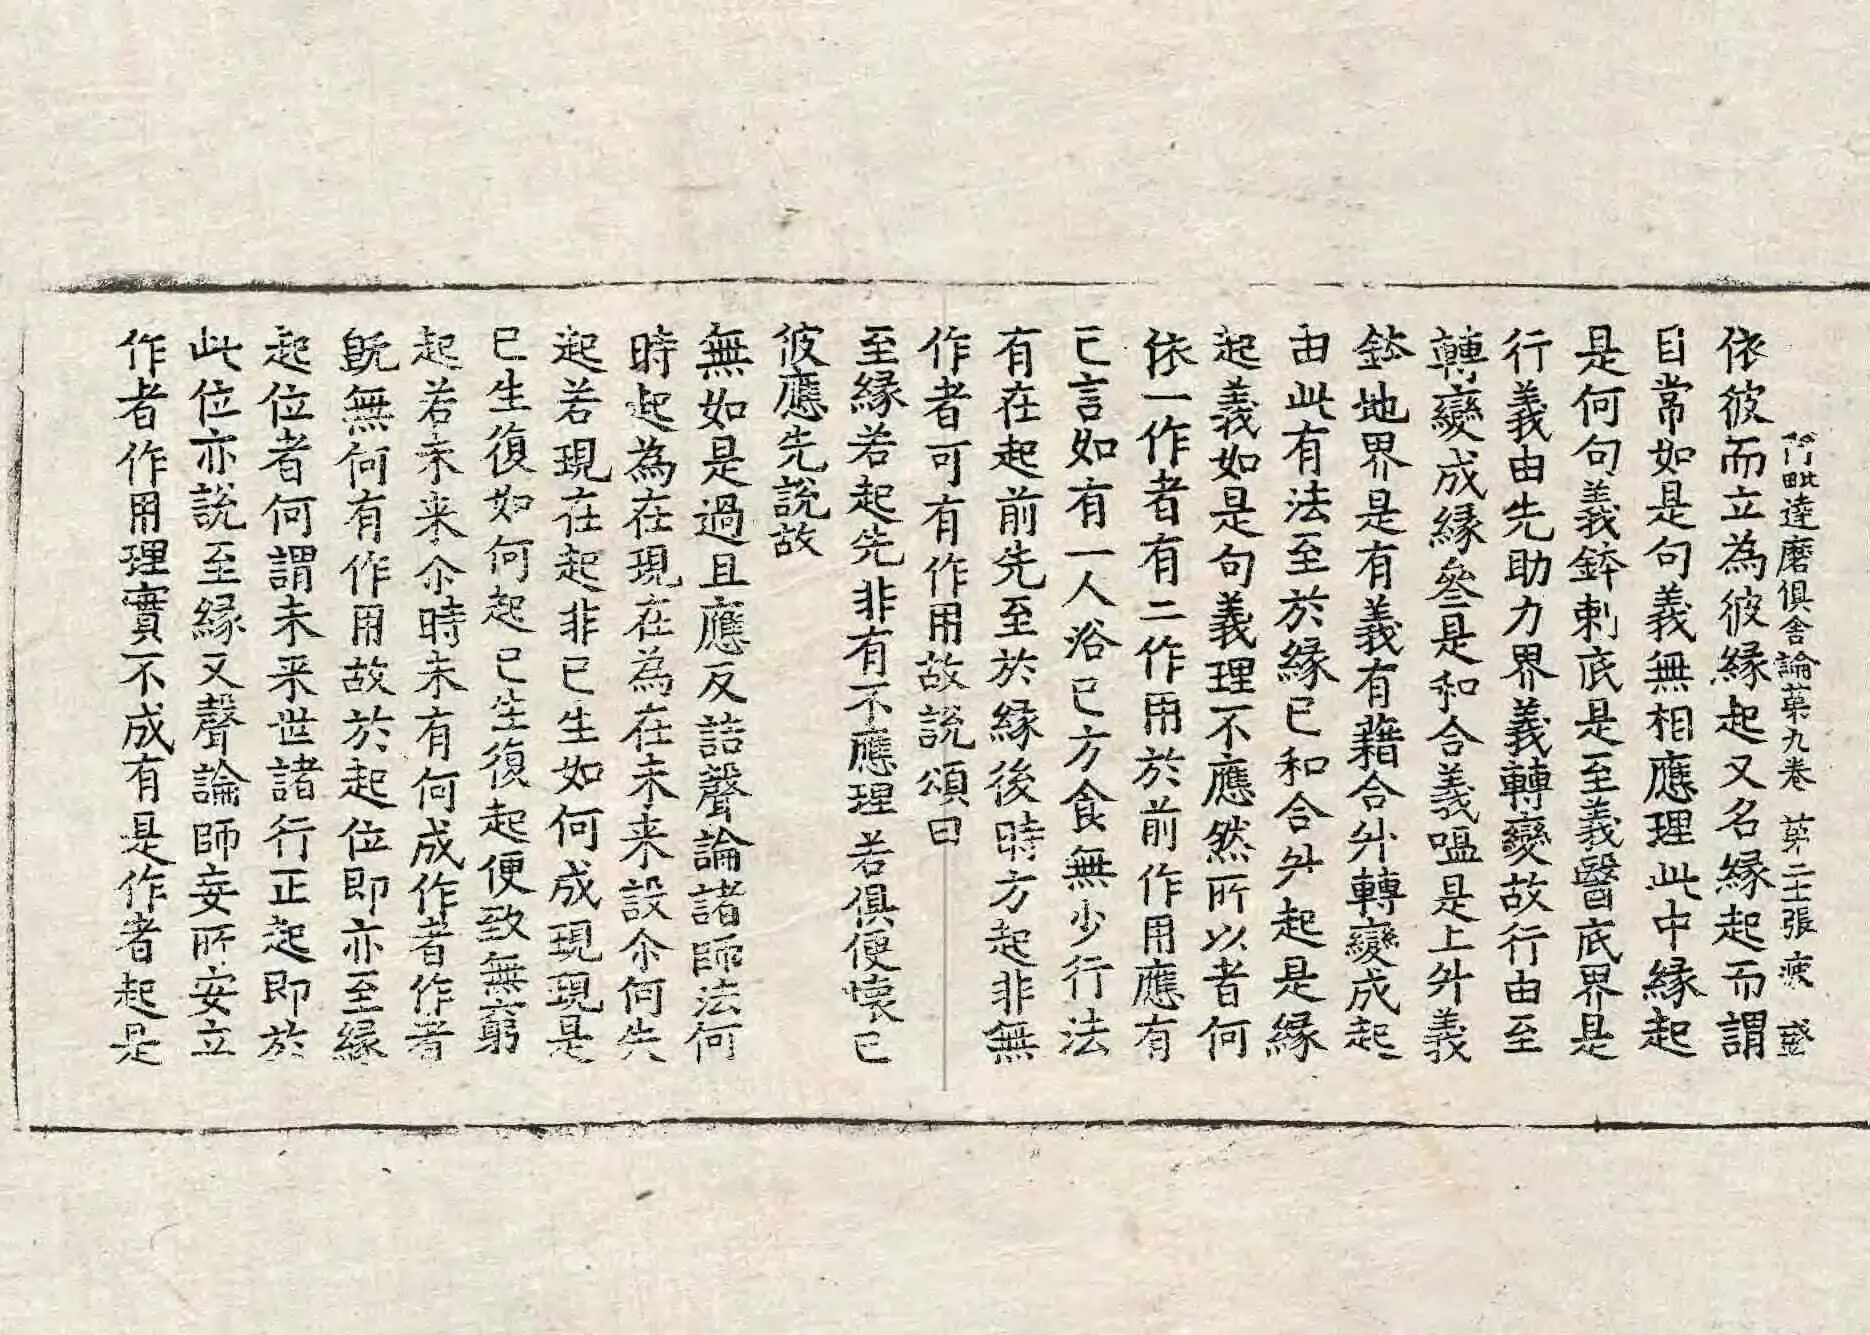 阿毗達磨俱舍論苐九卷 苐二十張 疲 盛
依彼而立為彼縁起又名縁起而謂
自常如是句義無相應理此中縁起
是何句義鉢剌底是至義醫底界是
行義由先助力界義轉變故行由至
轉變成縁叄是和合義嗢是上升義
鉢地界是有義有藉合升轉變成起
由此有法至於縁已和合升起是縁
起義如是句義理不應然所以者何
依一作者有二作用於前作用應有
已言如有一人浴已方食無少行法
有在起前先至於縁後時方起非無
作者可有作用故說頌曰
至縁若起先 非有不應理 若俱便懐已
彼應先說故
無如是過且應反詰聲論諸師法何
時起為在現在為在未来設尒何失
起若現在起非已生如何成現現是
已生復如何起已生復起便致無窮
起若未来尒時未有何成作者作者
旣無何有作用故於起位即亦至縁
起位者何謂未来世諸行正起即於
此位亦說至縁又聲論師妄所安立
作者作用理實不成有是作者起是